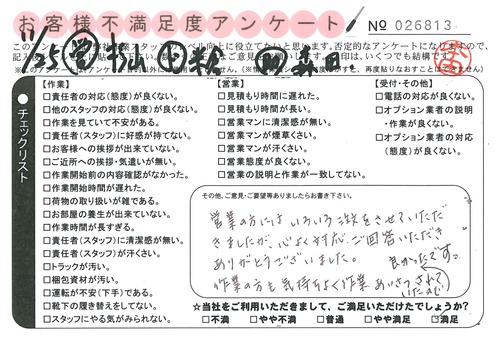 お客様不満足度アンケート
No 026813
11/5
【作業】
□責任者の対応(態度)が良くない。
□他のスタッフの対応(態度)が良くない。
□作業を見ていて不安がある。
□責任者(スタッフ)に好感が持てない。
□お客様への挨拶が出来ていない。
□ご近所への挨拶・気遣いが無い。
□作業開始前の内容確認がなかった。
□作業開始時間が遅れた。
□荷物の取り扱いが雑である。
□お部屋の養生が出来ていない。
□作業時間が長すぎる。
□責任者(スタッフ)に清潔感が無い。
□責任者(スタッフ)が汗くさい。
□トラックが汚い。
□梱包資材が汚い。
□運転が不安(下手)である。
□靴下の履き替えをしてない。
□スタッフにやる気がみられない。
【営業】
□見積もり時間に遅れた。
□見積もり時間が長い。
□営業マンに清潔感が無い。
□営業マンが煙草くさい。
□営業マンが汗くさい。
□営業態度が良くない。
□営業の説明と作業が一致してない。
【受付・その他】
□電話の対応が良くない。
□オプション業者の説明
・作業が良くない。
□オプション業者の対応
(態度)が良くない。
チェックリスト
その他、ご意見・ご要望等ありましたらお書き下さい。
営業の方にはいろいろ注文をさせていただ
きましたが、心よく対応、ご回答いただき
ありがとうございました。
作業の方も気持ちよく作業、あいさつされて
いたので
良かったです。
☆当社をご利用いただきまして、ご満足いただけたでしょうか?
□不満 □やや不満 □普通 □やや満足 □満足